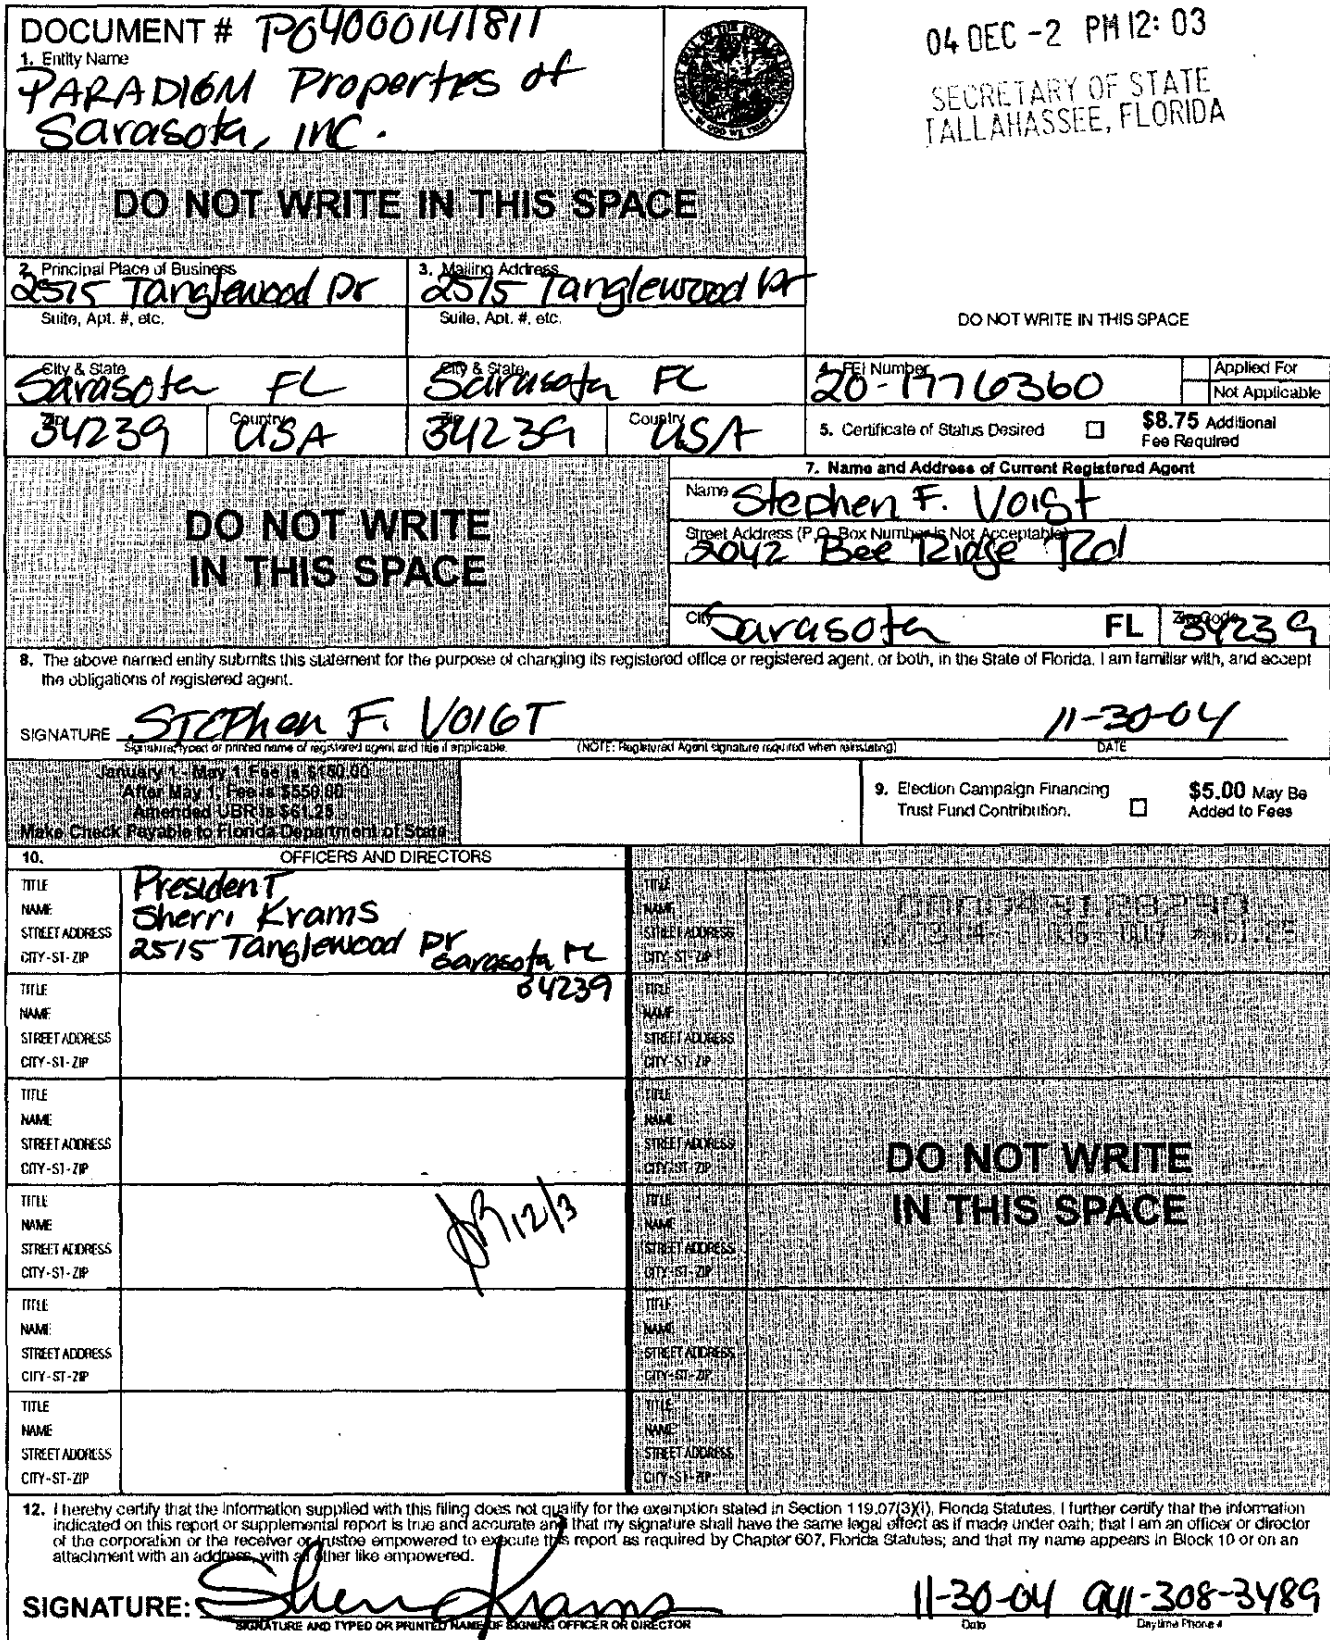 DOCUMENT # P04000141811
04 DEC -2 PM 12: 03
SECRETARY OF STATE
TALLAHASSEE, FLORIDA
1. Entity Name
PARADIGM Properties of
Sarasota, INC.
DO NOT WRITE IN THIS SPACE
2. Principal Place of Business
2515 Tanglewood Dr
3. Mailing Address
2515 Tanglewood Dr
Suite, Apt. #, etc.
Suite, Apt. #, etc.
DO NOT WRITE IN THIS SPACE
City & State
Sarasota FL
City & State
Sarasota FL
4. FEI Number
20-1776360
Applied For
Not Applicable
Zip
34239
Country
USA
Zip
34239
Country
USA
5. Certificate of Status Desired
$8.75 Additional
Fee Required
DO NOT WRITE
IN THIS SPACE
7. Name and Address of Current Registered Agent
Name Stephen F. Voigt
Street Address (P.O. Box Number is Not Acceptable)
2042 Bee Ridge Rd
City Sarasota FL Zip Code 34239
8. The above named entity submits this statement for the purpose of changing its registered office or registered agent, or both, in the State of Florida. I am familiar with, and accept
the obligations of registered agent.
SIGNATURE STEPhen F. VOIGT 11-30-04
Signature, typed or printed name of registered agent and title if applicable. (NOTE: Registered Agent signature required when reinstating) DATE
January 1 - May 1 Fee is $150.00
After May 1, Fee is $550.00
Amended UBR is $61.25
Make Check Payable to Florida Department of State
9. Election Campaign Financing
Trust Fund Contribution.
$5.00 May Be
Added to Fees
10. OFFICERS AND DIRECTORS
TITLE President
NAME Sherri Krams
STREET ADDRESS 2515 Tanglewood Dr
CITY-ST-ZIP Sarasota FL
34239
TITLE
NAME
STREET ADDRESS
CITY-ST-ZIP
TITLE
NAME
STREET ADDRESS
CITY-ST-ZIP
TITLE
NAME
STREET ADDRESS
CITY-ST-ZIP
12/3
TITLE
NAME
STREET ADDRESS
CITY-ST-ZIP
TITLE
NAME
STREET ADDRESS
CITY-ST-ZIP
TITLE
NAME
STREET ADDRESS
CITY-ST-ZIP
TITLE
NAME
STREET ADDRESS
CITY-ST-ZIP
TITLE
NAME
STREET ADDRESS
CITY-ST-ZIP
DO NOT WRITE
IN THIS SPACE
TITLE
NAME
STREET ADDRESS
CITY-ST-ZIP
TITLE
NAME
STREET ADDRESS
CITY-ST-ZIP
TITLE
NAME
STREET ADDRESS
CITY-ST-ZIP
12. I hereby certify that the information supplied with this filing does not qualify for the exemption stated in Section 119.07(3)(i), Florida Statutes. I further certify that the information
indicated on this report or supplemental report is true and accurate and that my signature shall have the same legal effect as if made under oath; that I am an officer or director
of the corporation or the receiver or trustee empowered to execute this report as required by Chapter 607, Florida Statutes; and that my name appears in Block 10 or on an
attachment with an address, with all other like empowered.
SIGNATURE: Sherri Krams 11-30-04 941-308-3489
SIGNATURE AND TYPED OR PRINTED NAME OF SIGNING OFFICER OR DIRECTOR Date Daytime Phone #